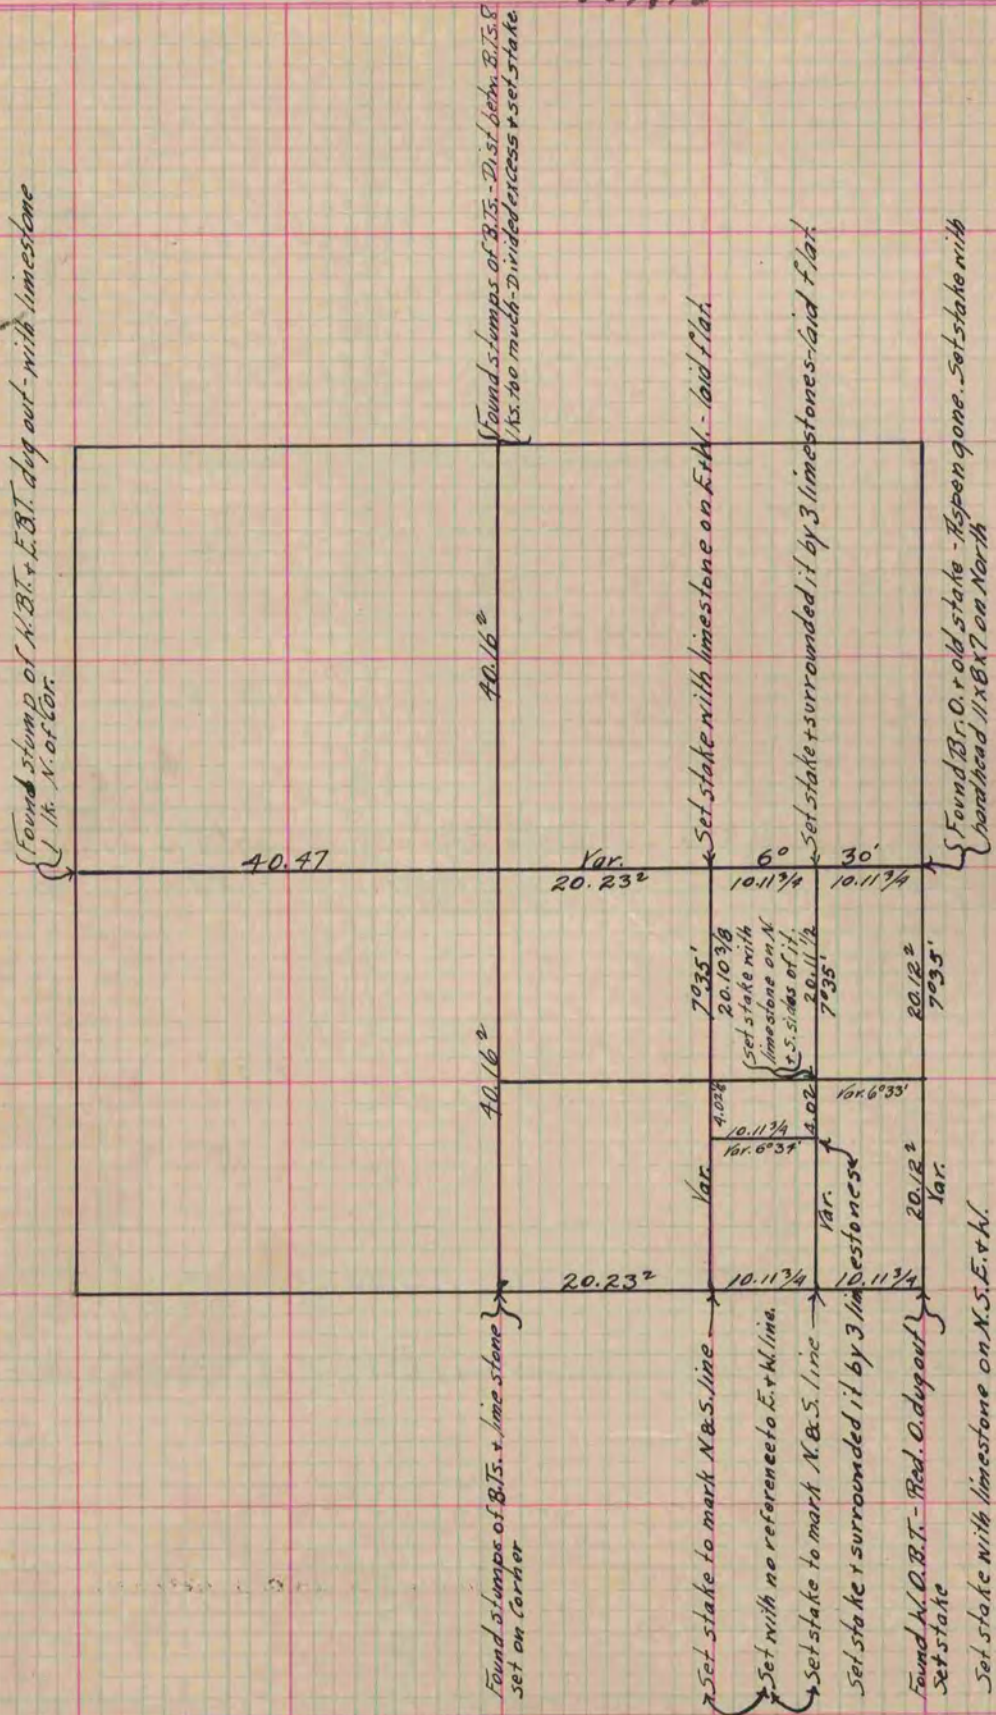 Found stump of W.B.T. + E.B.T. dug out - with limestone
1 lk. N. of Cor.
Found stumps of B.Ts. - Dist betw. B.Ts. 8
lks. too much - Divided excess + set stake.
40.47
40.16²
40.16²
Var. 6° 30'
20.23² 10.11¾ 10.11¾
Set stake with limestone on E.+W. - laid flat.
Set stake + surrounded it by 3 limestones - laid flat.
Found Br. O. + old stake - Aspen gone. Set stake with
hardhead 11x8x7 on North
Var. 7°35'
20.10⅜
Set stake with
limestone on N.
+ S. sides of it.
20.11½
Var. 7°35'
20.12²
20.12²
Var. 7°35'
4.02⅛
4.02
10.11¾
Var. 6°34'
Var. 6°33'
20.23² 10.11¾ 10.11¾
Found stumps of B.Ts. + lime stone
set on Corner
Set stake to mark N.&S. line
Set with no reference to E.+W. line.
Set stake to mark N.&S. line
Set stake + surrounded it by 3 limestones
Found W.O.B.T. - Red. O. dug out
Set stake
Set stake with limestone on N.S.E.+W.